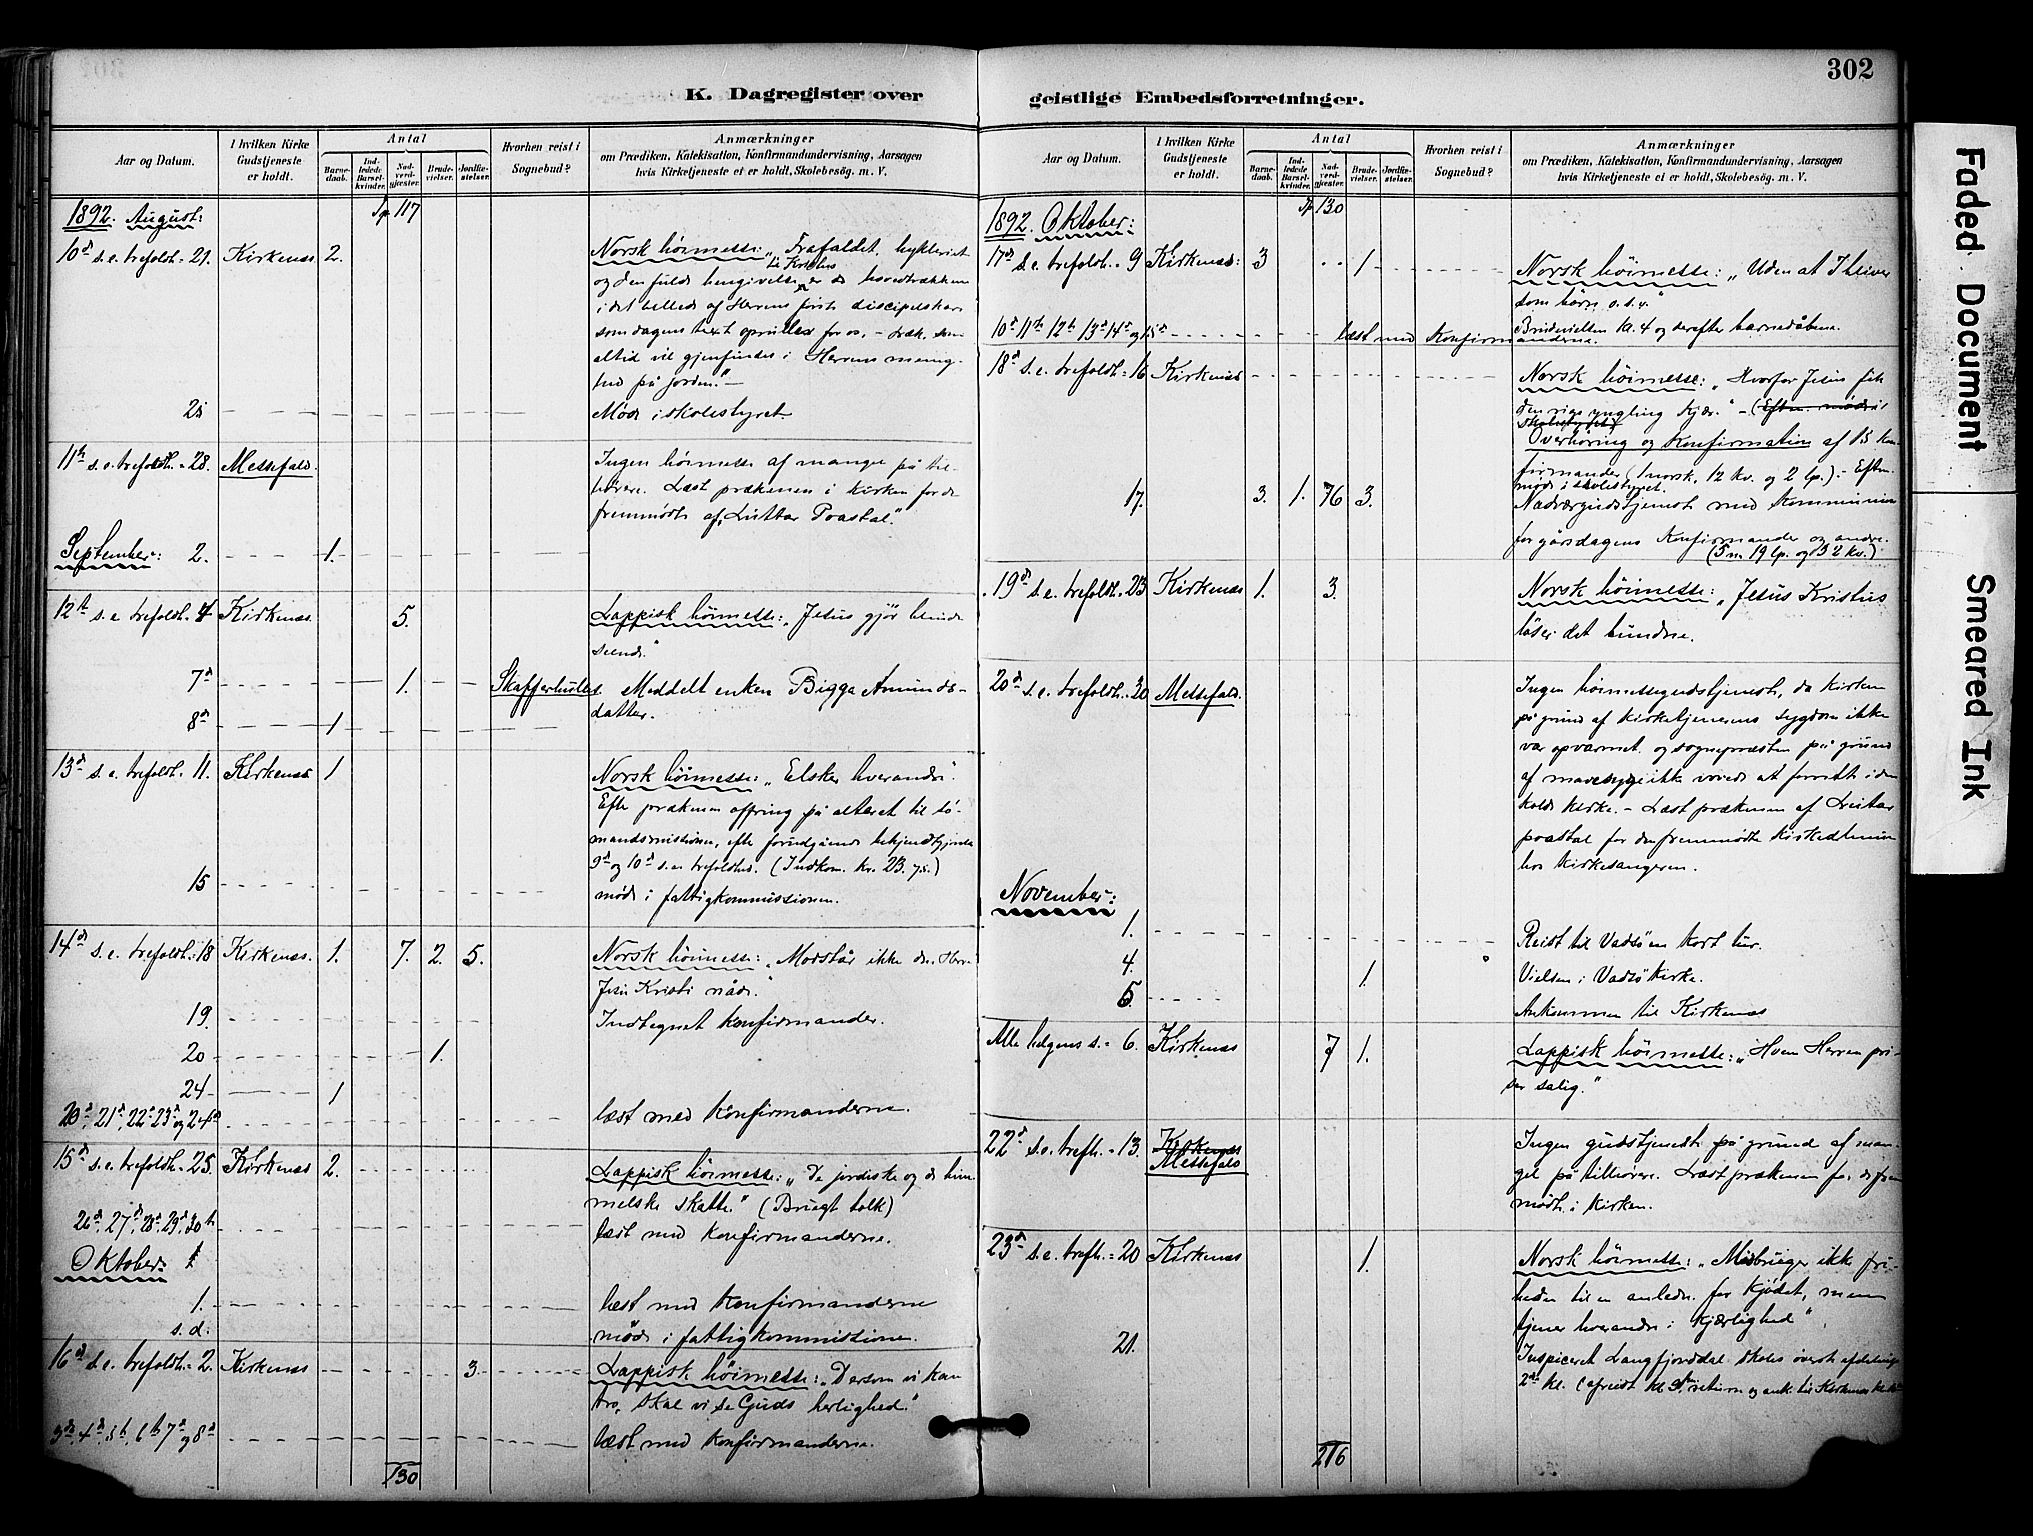 302
K. Dagregister over
Aar og Datum.
I hvilken Kirke Gudstjeneste er holdt.
Antal
Barne-daab.
Ind-ledede Barsel-kvinder.
Nad-verd-gjester.
Brude-vielser.
Jordfæ-stelser.
Hvorhen reist i Sognebud?
Anmærkninger
om Prædiken, Katekisation, Konfirmandundervisning, Aarsagen
hvis Kirketjeneste ei er holdt, Skolebesøg. m. V.
1892. August: 117
10d s.e. trefoldh. 21. Kirkenæs 2. Norsk höimesse: „Frafaldet, hykleriet
til Kristus
og den fulde hengivelse er de hovedtrækkene
i det billede af Herrens første discipelskare
som dagens text oprulles for os, – træk, som
altid vil gjenfindes i Herrens menig-
hed på jorden." –
Møde i skolestyret
11th s.e. trefoldh. 28. Messefald. Ingen höimesse af mangel på til-
hörere. Læst prækenen i kirken for de
fremmödte af „Luthar Poastal."
September: 2. 1.
12th s.e. trefoldh. 4 Kirkenæs 5. Lappisk höimesse: „Jesus gjör blinde
seende."
7d 1. Meddelt enken Bigga Amunds-
datter.
8d 1
13d s.e. trefoldh. 11. Kirkenæs 1 Norsk höimesse: „Elsker hverandre".
Efter prækenen offring på alteret til sö-
mandsmissionen, efter forudgående bekjendtgjörelse
9d og 10d s.e. trefoldhed. (Indkom. kr. 23.75.)
15 møde i fattigkommissionen.
14d s.e. trefoldh. 18 Kirkenæs. 1. 7. 2. 5. Norsk höimesse: „Modstår ikke den Herre
Jesu Kristi nåde."
19. Indtegnet konfirmander.
20 1.
24 1
20d, 21d, 22d 23d og 24d læst med konfirmanderne.
15d s.e. trefoldh. 25. Kirkenæs 2. Lappisk höimesse: „De jordiske og de him-
melske skatte." (Brugt tolk)
26d, 27d, 28d, 29d, 30th læst med konfirmanderne.
Oktober: 1
1. læst med konfirmanderne
s.d. møde i fattigkommissionen.
16d s.e. trefoldh. 2. Kirkenæs 3. Lappisk höimesse: „Dersom vi kan
tro, skal vi se Guds herlighed."
3d, 4d, 5th, 6th 7d og 8d læst med konfirmanderne.
130
geistlige Embedsforretninger.
Aar og Datum.
I hvilken Kirke Gudstjeneste er holdt.
Antal
Barne-daab.
Ind-ledede Barsel-kvinder.
Nad-verd-gjester.
Brude-vielser.
Jordfæ-stelser.
Hvorhen reist i Sognebud?
Anmærkninger
om Prædiken, Katekisation, Konfirmandundervisning, Aarsagen
hvis Kirketjeneste ei er holdt, Skolebesøg. m. V.
1892. Oktober: 130
17d s.e. trefoldh. 9 Kirkenæs: 3 1 Norsk höimesse: „Uden at I bliver
som börn o.s.v."
Brudevielsen kl. 4 og derefter barnedåbene.
10d 11th 12th 13d 14d og 15d læst med konfirmanderne.
18d s.e. trefoldh. 16 Kirkenæs Norsk höimesse: „Hvorfor Jesus fik
den rige yngling kjær." – (Eftm. møde i
skolestyret)
Overhöring og konfirmation af 15 kon-
firmander (1 norsk, 12 kv. og 2 lp.) – Eftm.
møde i skolestyret.
17. 3. 1. 76 3. Nadvergudstjeneste med kommunion
for gårsdagens konfirmander og andre.
(5 n. 19 lp. og 52 kv.)
19d s.e. trefoldh. 23 Kirkenæs 1. 3. Norsk höimesse: „Jesus Kristus
löser det bundne.
20d s.e. trefoldh. 30 Messefald. Ingen höimessegudstjeneste, da kirken
på grund af kirketjenerens sygdom ikke
var opvarmet og sognepræsten på grund
af mavesyge ikke vovede at forrette i den
kolde kirke. – Læst prækenen af Luthar
poastal for den fremmödte kirkealmue
hos kirkesangeren.
November:
1. Reist til Vadsö en kort tur.
4. 1. Vielsen i Vadsö kirke.
5. Ankommen til Kirkenæs
Alle helgens s. 6. Kirkenæs 7 1. Lappisk höimesse: „Hvem Herren pri-
ser salig."
22d s.e. trefh. 13. Kirkenæs
Messefald
Ingen gudstjeneste på grund af man-
gel på tilhörere. Læst prækenen for de frem-
mödte i kirken.
23d s.e. trefh. 20 Kirkenæs 1. Norsk höimesse: „Misbruger ikke fri-
heden til en anledn. for kjödet, men
tjener hverandre i kjærlighed".
21. Inspiceret Langfjorddal skoles överste afdelings
2den kl.
216
Faded Document
Smeared Ink